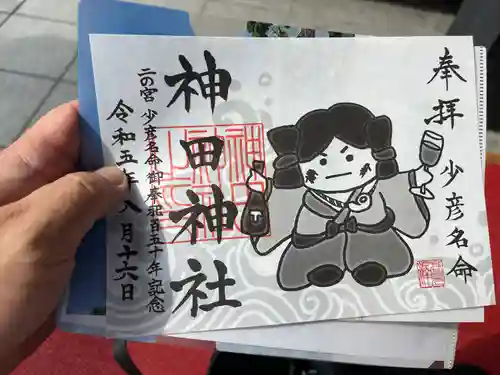 奉拝
少彦名命
神田神社
二の宮 少彦名命御奉祀百五十年記念
令和五年八月十六日
T